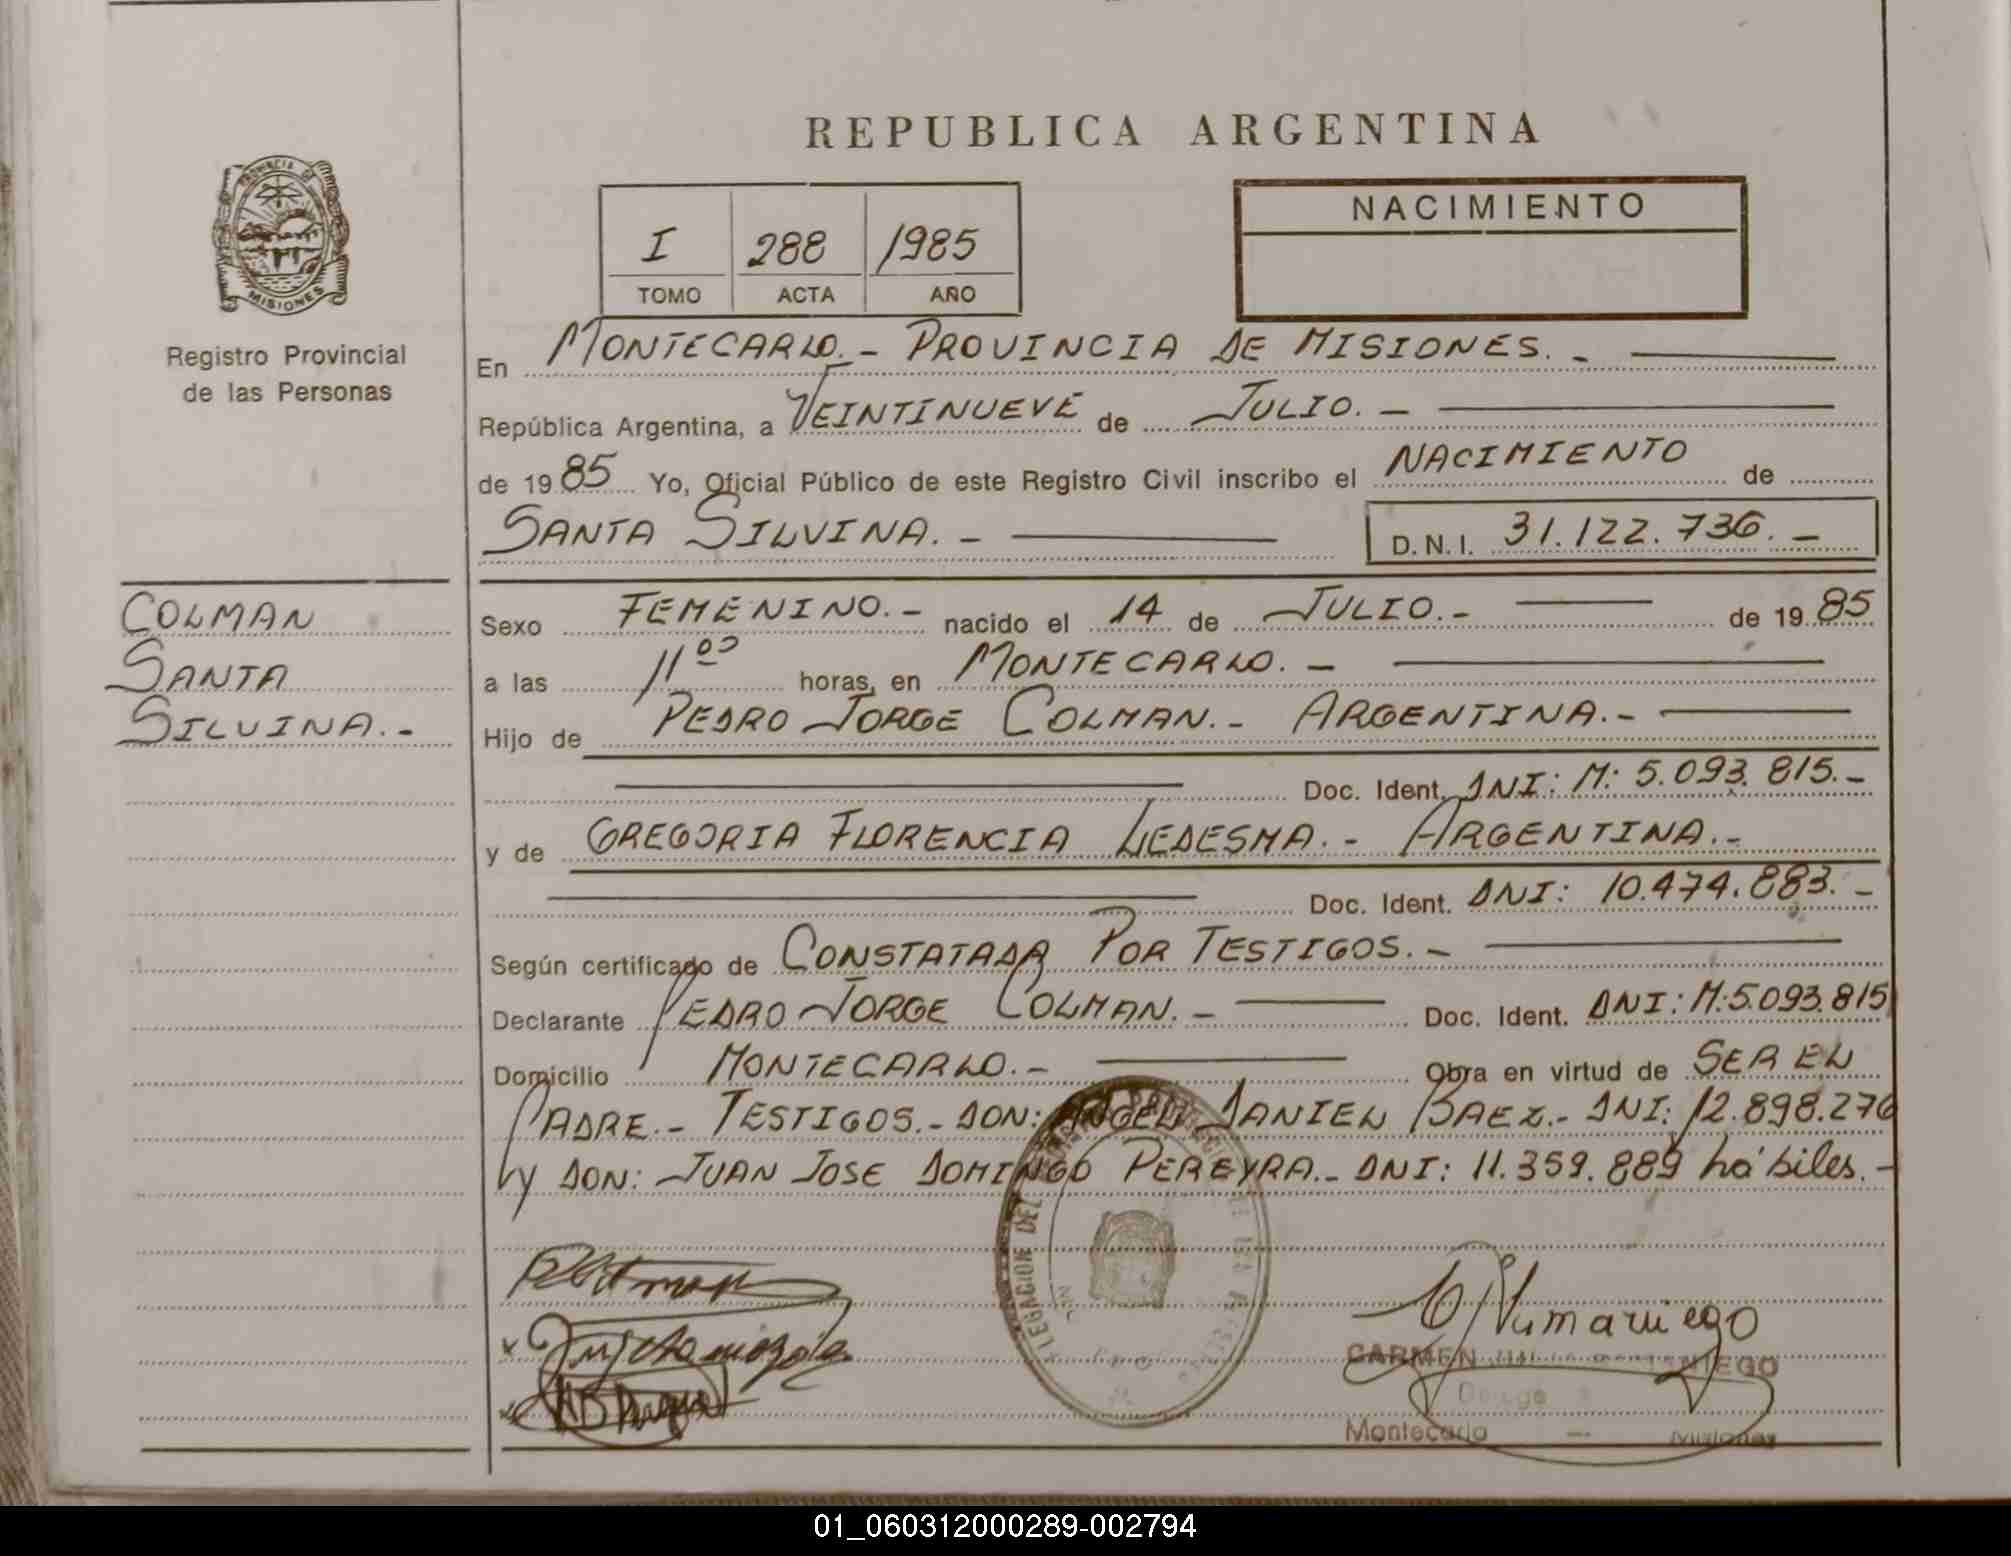 REPUBLICA ARGENTINA
PROVINCIA DE MISIONES
Registro Provincial
de las Personas
I 288 1985
TOMO ACTA AÑO
NACIMIENTO
En MONTECARLO.- PROVINCIA DE MISIONES.-
República Argentina, a VEINTINUEVE de JULIO.-
de 1985 Yo, Oficial Público de este Registro Civil inscribo el NACIMIENTO de
SANTA SILVINA.- D.N.I. 31.122.736.-
COLMAN
SANTA
SILVINA.-
Sexo FEMENINO.- nacido el 14 de JULIO.- de 1985
a las 11⁰⁰ horas, en MONTECARLO.-
Hijo de PEDRO JORGE COLMAN.- ARGENTINA.-
Doc. Ident. DNI: M: 5.093.815.-
y de GREGORIA FLORENCIA LEDESMA.- ARGENTINA.-
Doc. Ident. DNI: 10.474.883.-
Según certificado de CONSTATADA POR TESTIGOS.-
Declarante PEDRO JORGE COLMAN.- Doc. Ident. DNI: M:5.093.815
Domicilio MONTECARLO.- Obra en virtud de SER EL
PADRE.- TESTIGOS.- DON: ANGEL DANIEL BAEZ.- DNI: 12.898.276
y DON: JUAN JOSE DOMINGO PEREYRA.- DNI: 11.359.889 hábiles.-
CARMEN
Montecarlo — Misiones
01_060312000289-002794